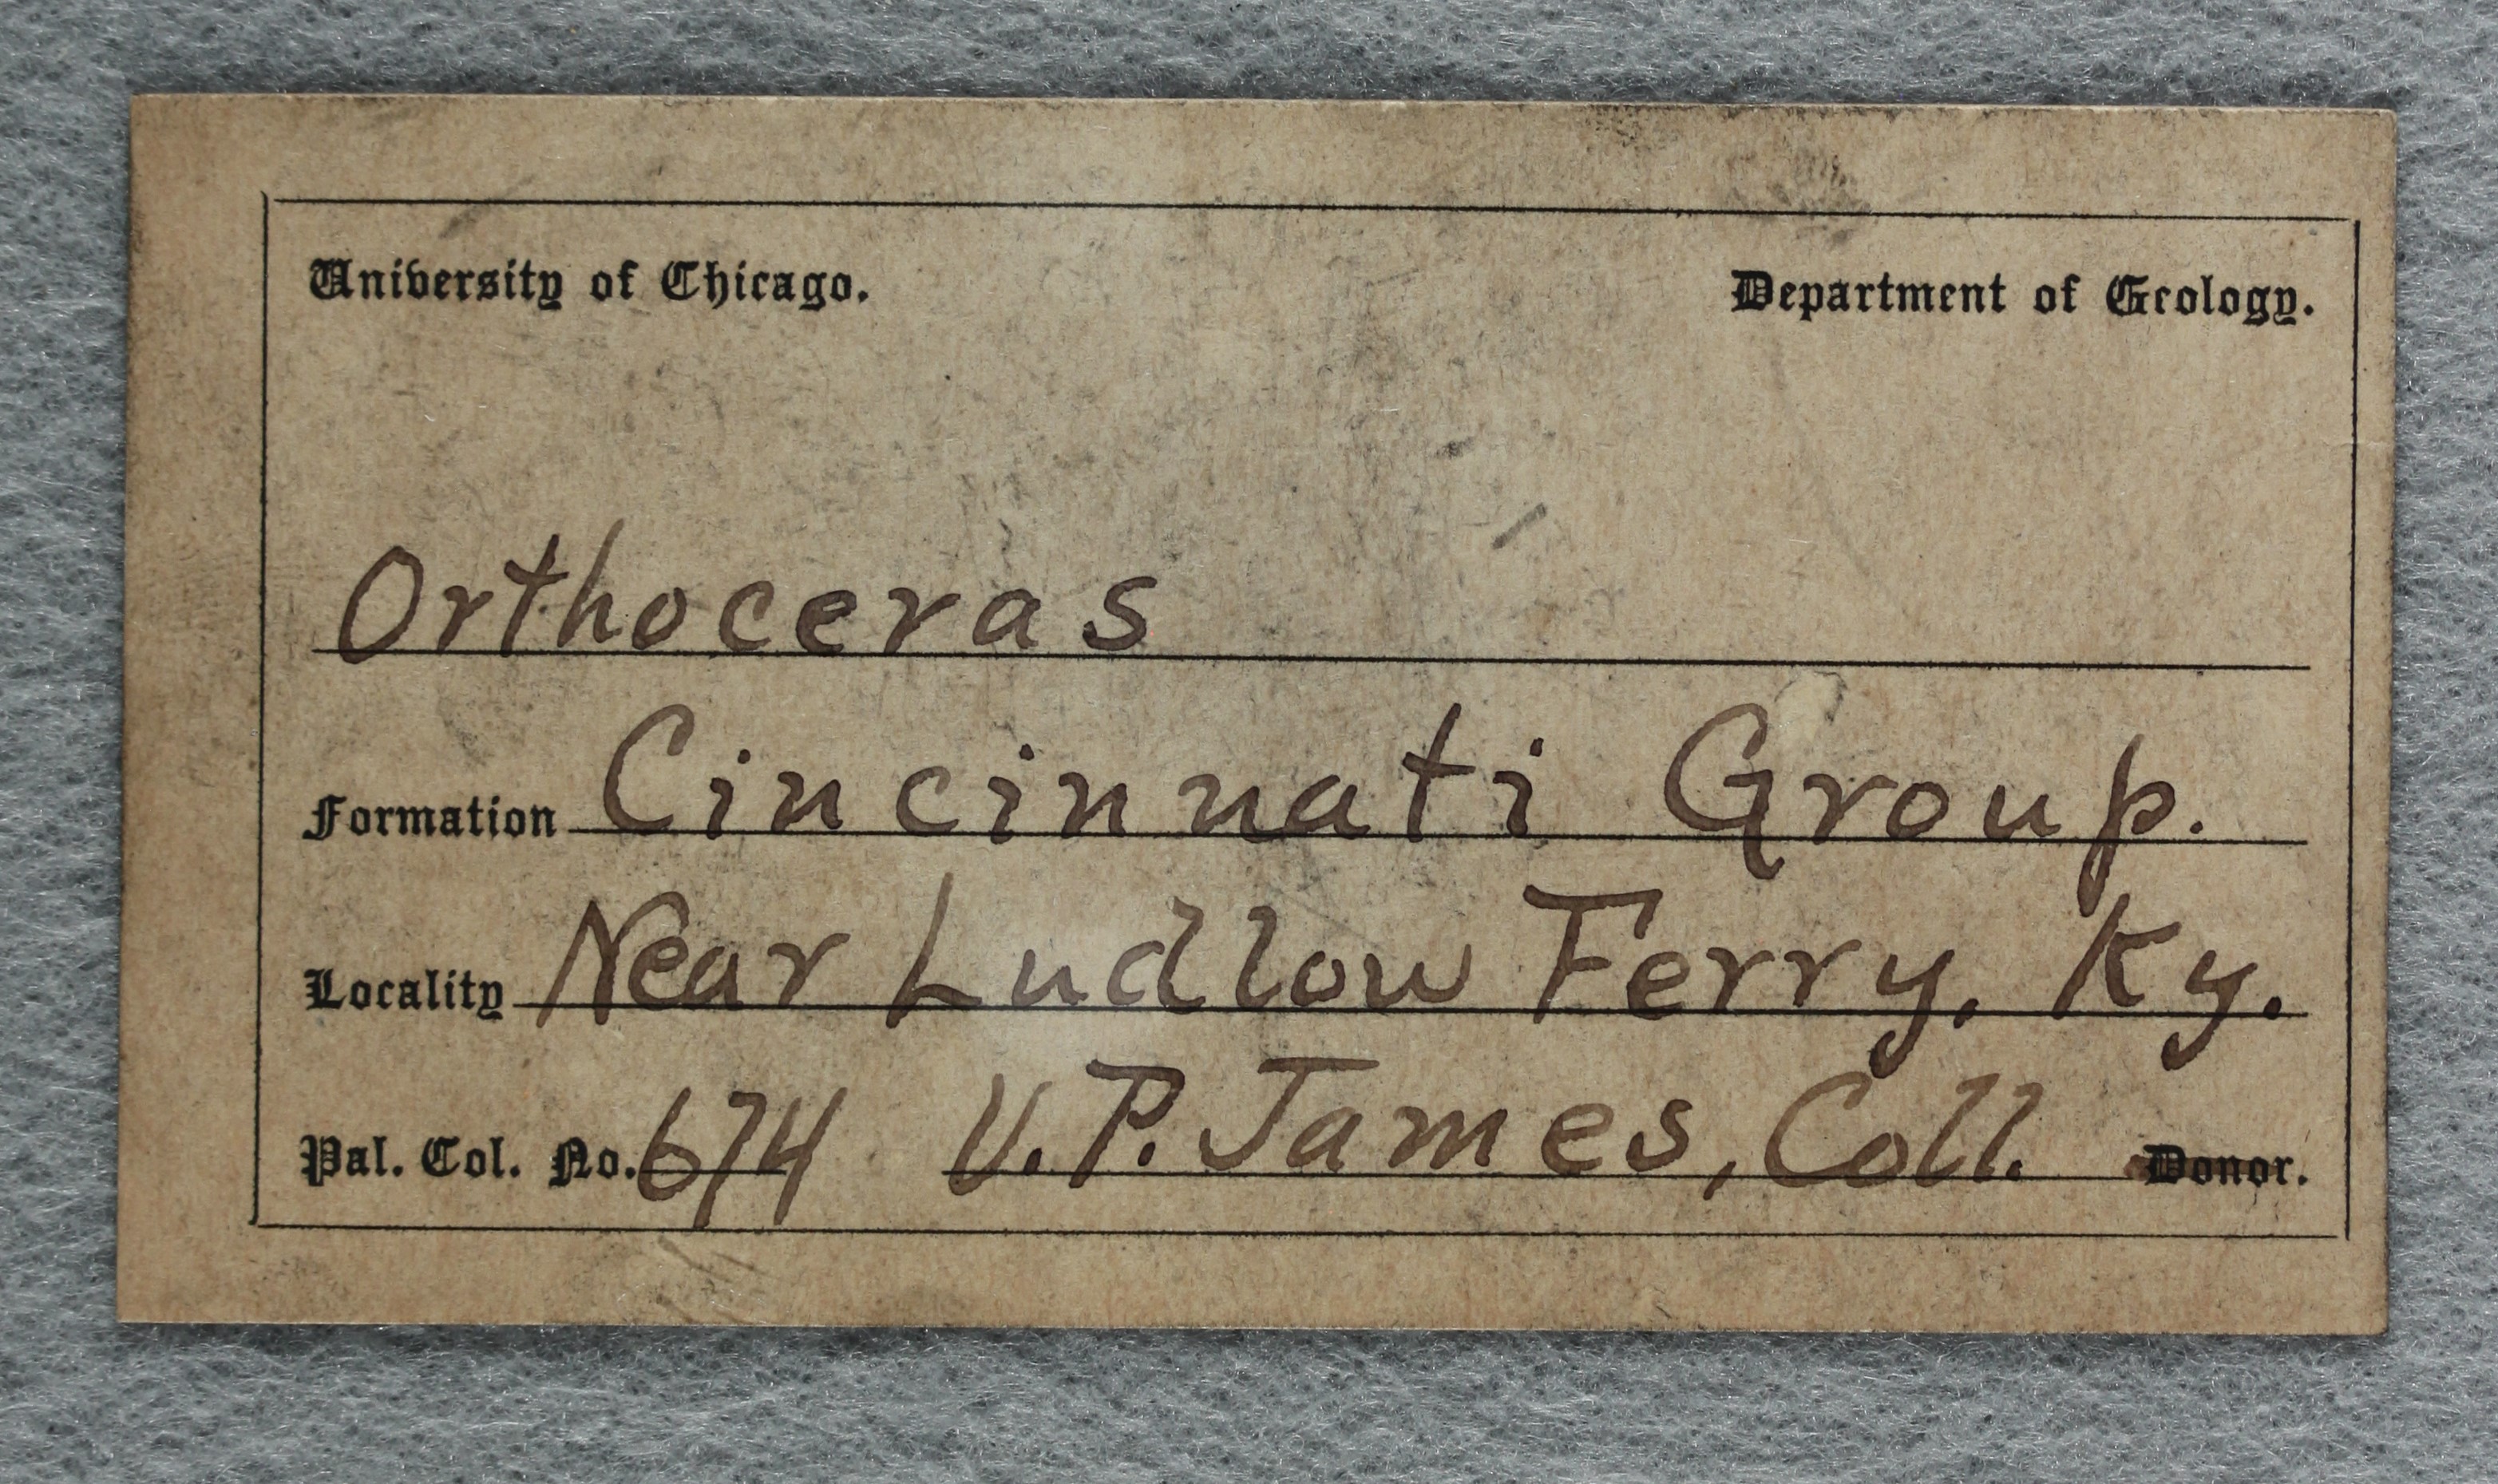 University of Chicago. Department of Geology.
Orthoceras
Formation Cincinnati Group.
Locality Near Ludlow Ferry, Ky.
Pal. Col. No. 674 U.P. James, Coll. Donor.